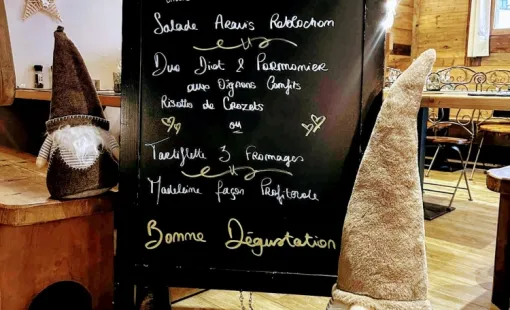 Salade Aravis Reblochon
Duo Diot & Pormonier
aux Oignons Confits
Risotto de Crozets
ou
Tartiflette 3 Fromages
Madeleine façon Profiterole
Bonne Dégustation